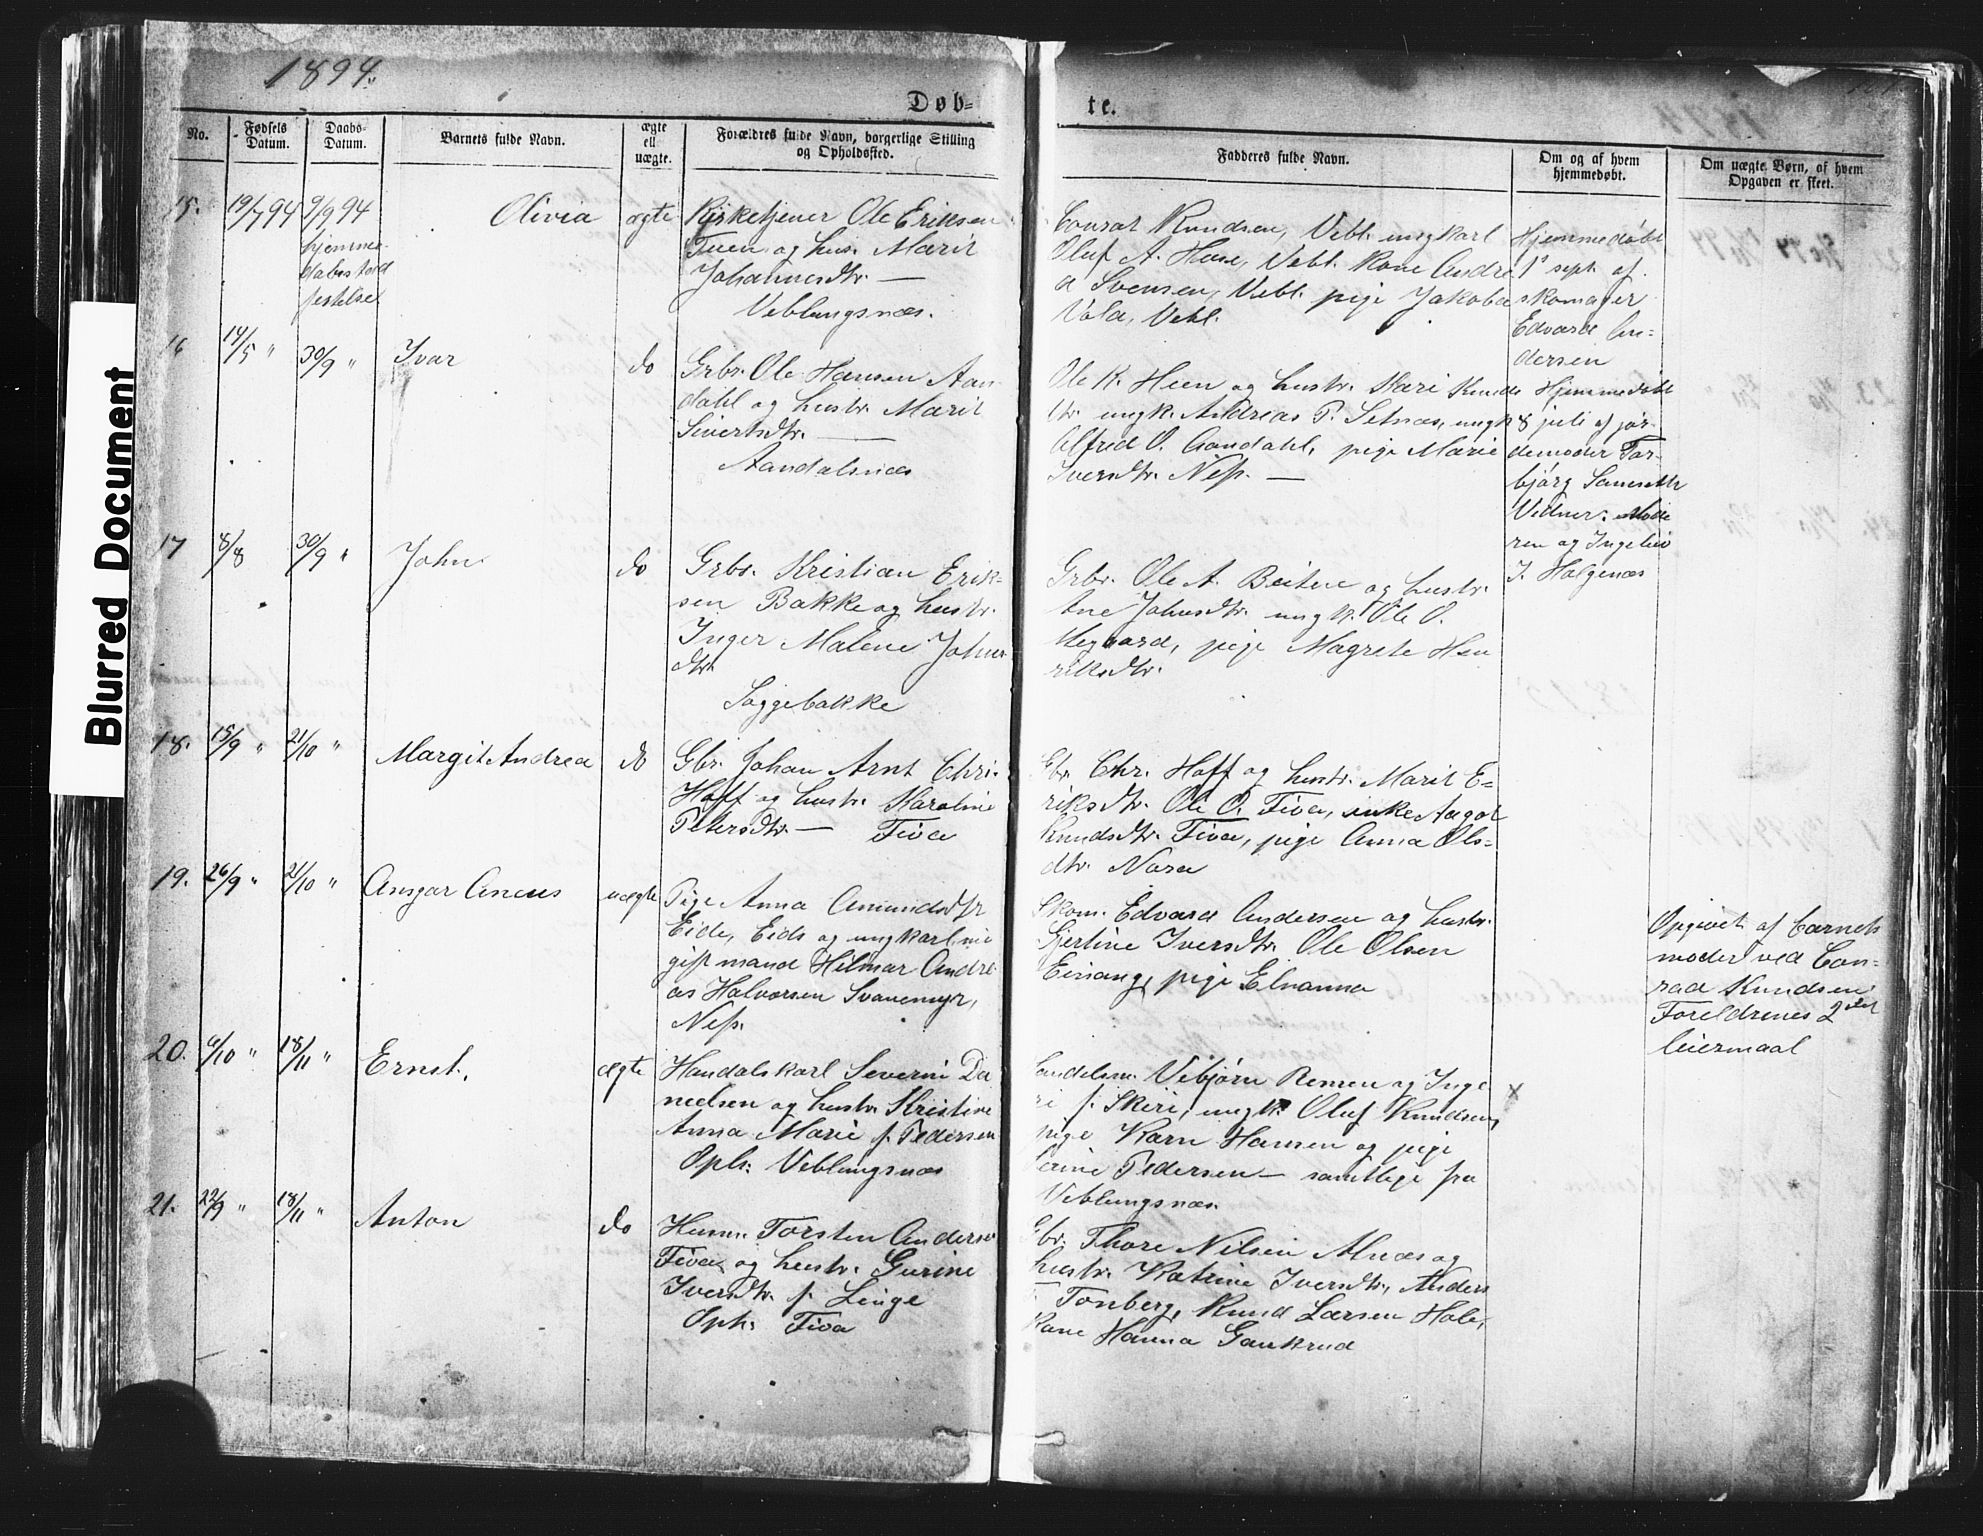 Blurred Document
1894.
Døb=
te.
No.
Fødsels Datum.
Daabs-Datum.
Barnets fulde Navn.
ægte ell uægte.
Forældres fulde Navn, borgerlige Stilling og Opholdssted.
Fadderes fulde Navn.
Om og af hvem hjemmedøbt.
Om uægte Børn, af hvem Opgaven er skeet.
15.
19/7 94
9/9 94
hjemme
dabsstad
festelse
Olivia
ægte
Kirketjener Ole Eriksen
Tuen og hus. Marit
Johannesdtr. —
Veblungsnæs.
Conrat Knudsen, Vebl. ungkarl
Oluf A. Huse, Vebl. Kone Andre
a Svensen, Vebl. pige Jakoba
Vold, Vebl.
Hjemmedøbt
1 sept. af
skomager
Edvard An=
dersen
16
14/5 "
30/9 "
Ivar
do
Grbr. Ole Hansen Aan
dahl og hustr. Marit
Sivertsdtr. —
Aandalsnæs
Ole K. Heen og hustr. Kari Knuds
dtr. ungk. Andreas P. Setnæs, ungk
Alfred O. Aandahl, pige Marie
Iversdtr. Ness. —
Hjemmedøbt
8 juli af jor-
demoder Tor-
bjørg
og Ingebr
J. Halgenæs
17
8/8
30/9 "
John
do
Grbr. Kristian Erik-
sen Bakke og hustr.
Inger Malene Johns-
dtr.
Soggebakke
Grbr. Ole A. Breiten og hustr.
Ane Johnsdtr. ungk. Ole O.
pige Magrete Hen
riksdtr.
18.
15/9 "
21/10 "
Margit Andrea
do
Gbr. Johan Arnt Chr.
Hoff og hustr. Karoline
Petersdtr. — Fiva
Gbr. Chr. Hoff og hustr. Marit E=
riksdtr. Ole O. Fiva, enke Aagot
Knudsdtr. Fiva, pige Anna Ols=
dtr. Nora
19.
26/9 "
21/10 "
Ansgar
uægte
Pige Anna Amundsdtr
Eide, Eids og ungkarl
gift mand Hilmar Andre
as Halvorsen Svanemyr,
Ness.
Skom. Edvard Andersen og hustr.
Gjertine Iversdtr. Ole Olsen
pige Elnanna
Opgivet af Barnets
moder ved Con=
rad Knudsen.
Foreldrenes 2det
leiermaal
20.
6/10 "
18/11 "
Ernst.
ægte
Handelskarl Severin Da
nielsen og hustr. Kristine
Anna Marie f. Pedersen
Opls. Veblungsnæs
Handelsm. Vebjørn Remen og Inge
f. Skiri, ungk. Oluf Knudsen,
pige Karn Hansen og pige
Pedersen — samtlige fra
Veblungsnæs.
x
21.
22/9 "
18/11 "
Anton
do
Husm. Torsten Anderse
Fiva og hustr. Gurine
Iversdtr. f. Linge
Oph. Fiva
Gbr. Thore Nilsen Alnæs og
hustr. Katrine Iversdtr., Anders
Tonberg, Knud Larsen Hole,
Kone Hanna Gankrud